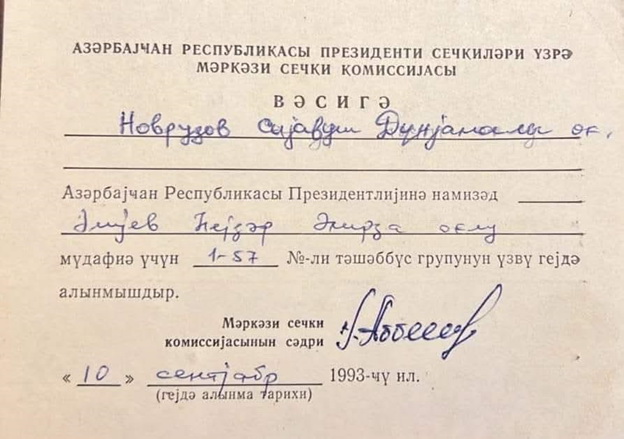 АЗӘРБАЈҸАН РЕСПУБЛИКАСЫ ПРЕЗИДЕНТИ СЕЧКИЛӘРИ ҮЗРӘ
МӘРКӘЗИ СЕЧКИ КОМИССИЈАСЫ
ВӘСИГӘ
Новрузов Сијавуш Дүнјамалы оғ.
Азәрбајҹан Республикасы Президентлијинә намизәд
Әлијев Һејдәр Әлирза оғлу
мүдафиә үчүн 1-57 №-ли тәшәббүс групунун үзвү гејдә
алынмышдыр.
Мәркәзи сечки
комиссијасынын сәдри
« 10 » сентјабр 1993-ҹү ил.
(гејдә алынма тарихи)